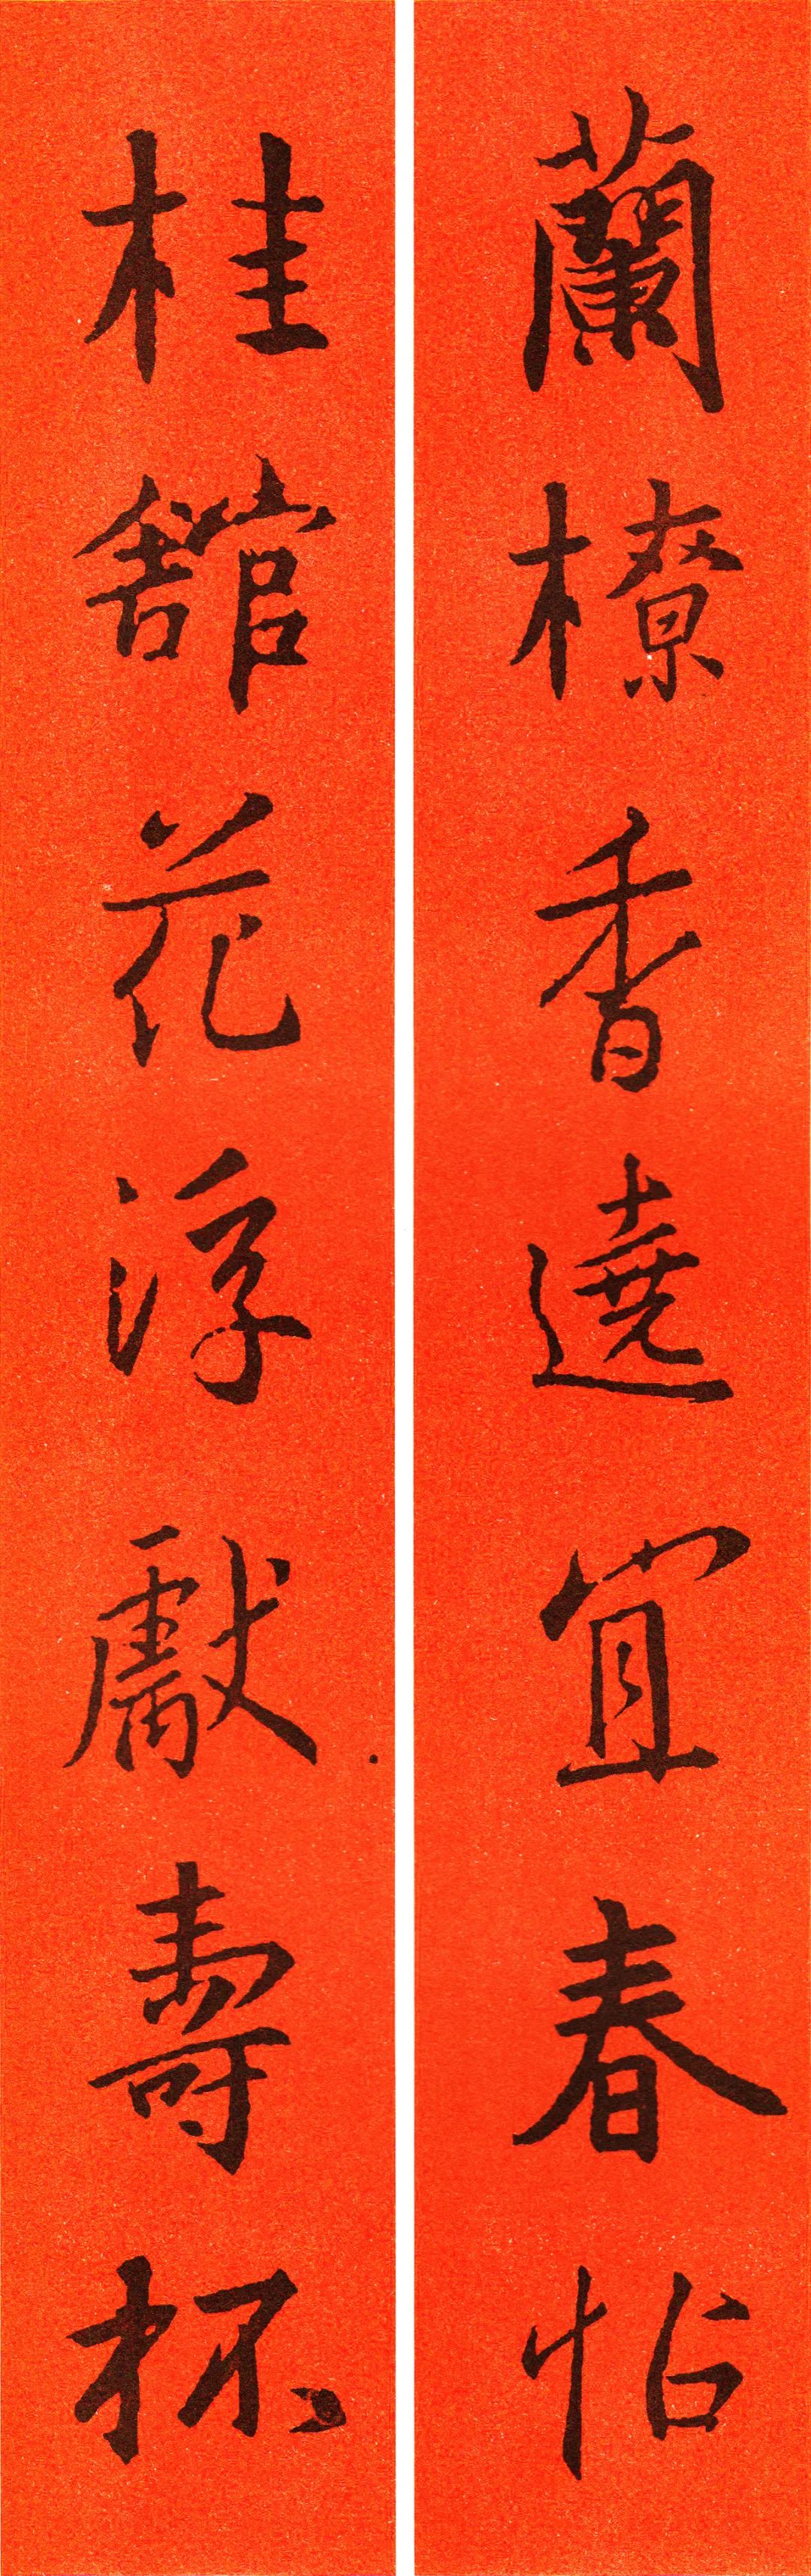 蘭橑香遶宜春帖
桂館花浮獻壽杯